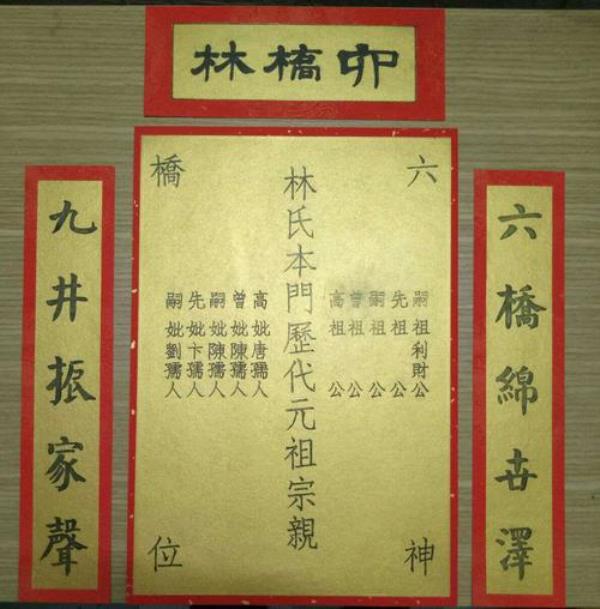 卯槗林
六橋綿世澤
六
橋
嗣祖利財公
先祖 公
嗣祖 公
曾祖 公
高祖 公
林氏本門歷代元祖宗親
高妣唐孺人
曾妣陳孺人
嗣妣陳孺人
先妣卞孺人
嗣妣劉孺人
神
位
九井振家聲